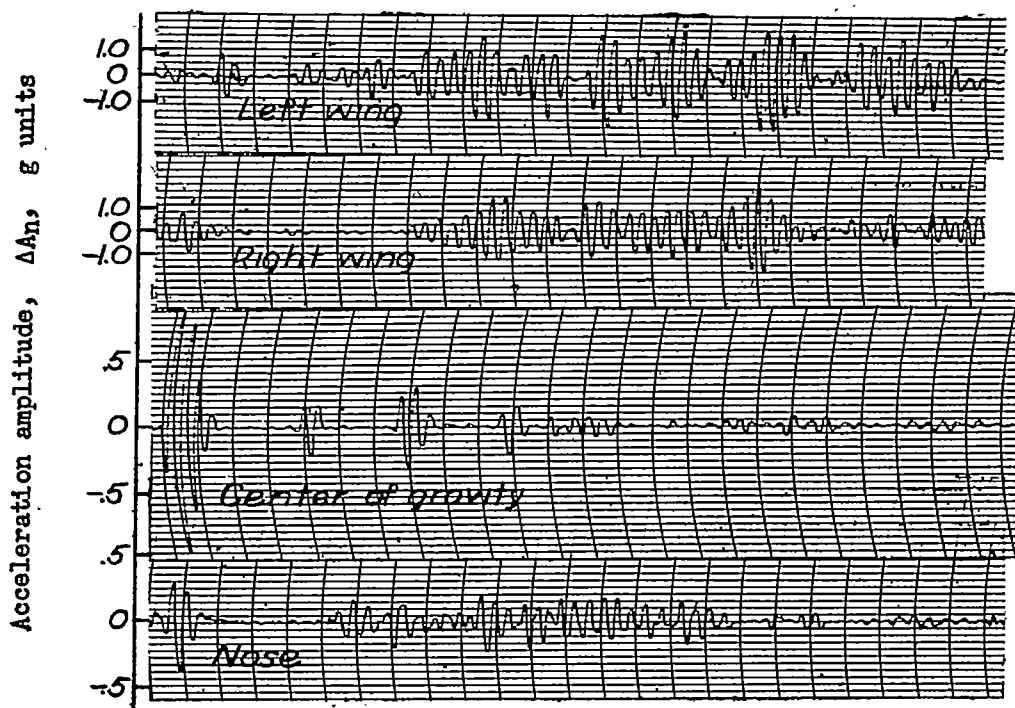 Acceleration amplitude, ΔAn, g units
1.0
0
-1.0
Left wing
1.0
0
-1.0
Right wing
.5
0
-.5
Center of gravity
.5
0
-.5
Nose